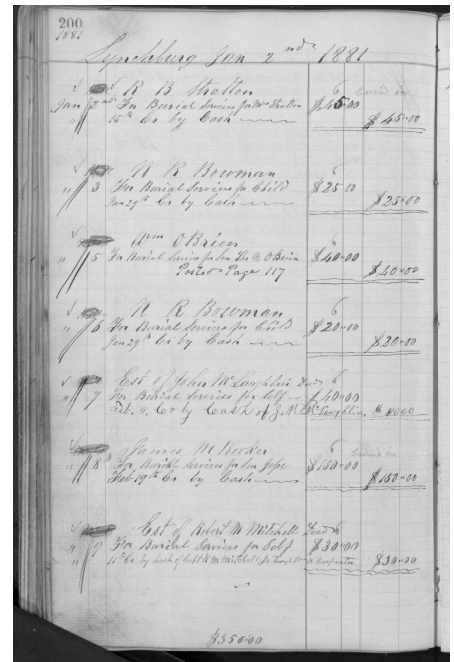 200
1881
Lynchburg Jan 2nd 1881
R B Stratton 6
Jan 2nd For Burial Services for Mrs Stratton $45.00
15th Cr by Cash $45.00
N R Bowman 6
" 3 For Burial Services for Child $25.00
Jan 29th Cr by Cash $25.00
Wm O'Brien 6
" 5 For Burial Services for Son Tho N O'Brien $40.00
Posted Page 117 $40.00
N R Bowman 6
" 6 For Burial Services for Child $20.00
Jan 29th Cr by Cash $20.00
Est of John McLaughlin Decd 6
" 7 For Burial Services for Self $40.00
Feb. 9. Cr by Cash of J. M. McLaughlin
James M Booker 6
" 8 For Burial Services for Son Jesse $150.00
Feb 19th Cr by Cash $150.00
Est of Robert M Mitchell Decd 6
" 9 For Burial Services for Self $30.00
15th Cr by Cash of Capt R M Mitchell Jr Carpenter $30.00
$350.00